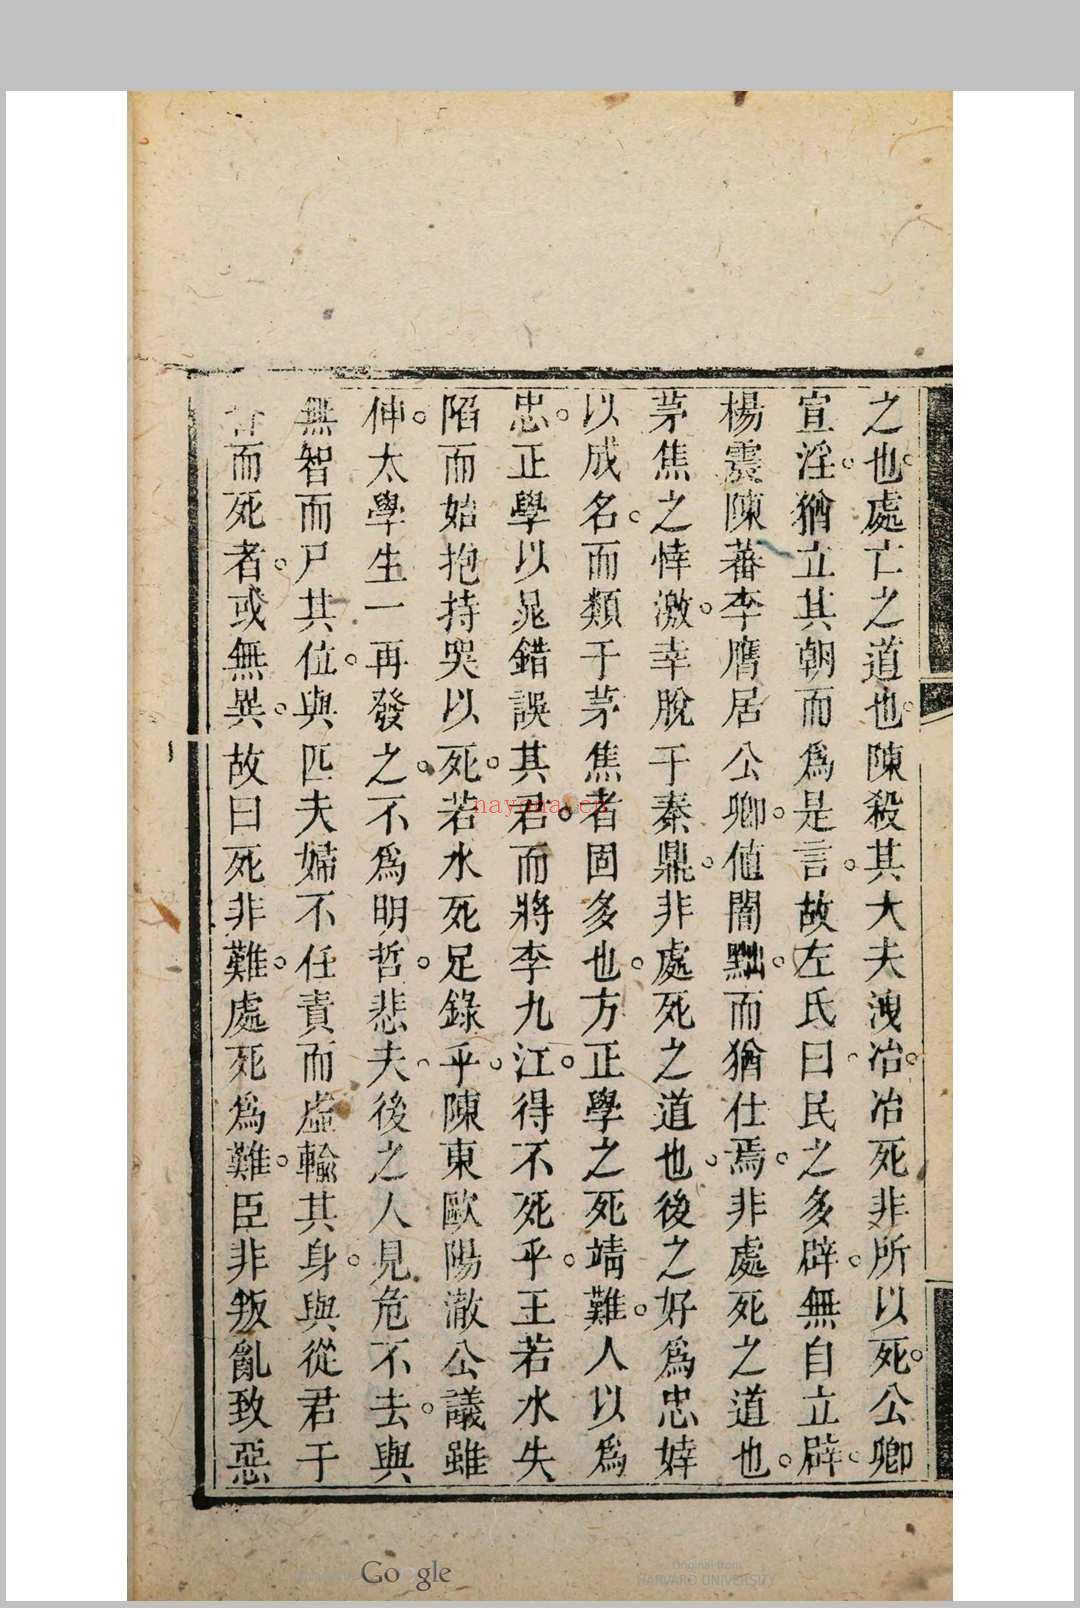 之也處亡之道也陳殺其大夫洩冶冶死非所以死公卿
宣淫猶立其朝而爲是言故左氏曰民之多辟無自立辟
楊震陳蕃李膺居公卿値闇黜而猶仕焉非處死之道也
茅焦之悻激幸脫于秦鼎非處死之道也後之好爲忠婞
以成名而類于茅焦者固多也方正學之死靖難人以爲
忠正學以晁錯誤其君而將李九江得不死乎王若水失
陷而始抱持哭以死若水死足錄乎陳東歐陽澈公議雖
伸太學生一再發之不爲明哲悲夫後之人見危不去與
無智而尸其位與匹夫婦不任責而虛輸其身與從君于
昏而死者或無異故曰死非難處死爲難臣非叛亂致惡
nayona.cn
Google
Original from
HARVARD UNIVERSITY